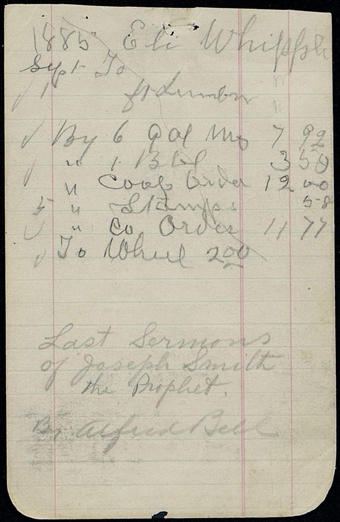 1885 Eli Whipple
Sept To
1 ft Lumber
By 6 gal 7 92
" 1 Bbl 3 50
" Coop order 12 00
5 " Stamps 58
" Co Order 11 77
To Wheel 2 00
Last Sermons
of Joseph Smith
the Prophet.
By Alfred Bell